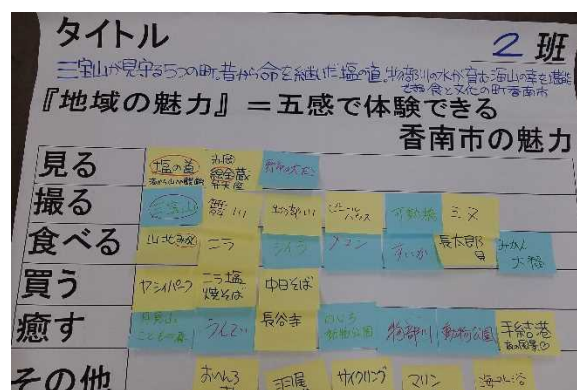 タイトル
2班
三宝山が見守る5つの町、昔から命を継いだ塩の道、物部川の水が育む海山の幸を堪能
食と文化の町香南市
『地域の魅力』=五感で体験できる
香南市の魅力
見る
塩の道
赤岡
絵金蔵
弁天座
撮る
三宝山
物部川
ビニール
ハウス
可動橋
食べる
山北みかん
ニラ
メロン
すいか
長太郎
貝
みかん
大福
買う
ヤ・シィパーク
ニラ塩
焼そば
中日そば
癒す
月見山
こどもの森
長谷寺
のいち
動物公園
物部川
動物公園
手結港
その他
おへんろ
サイクリング
マリン
海水浴